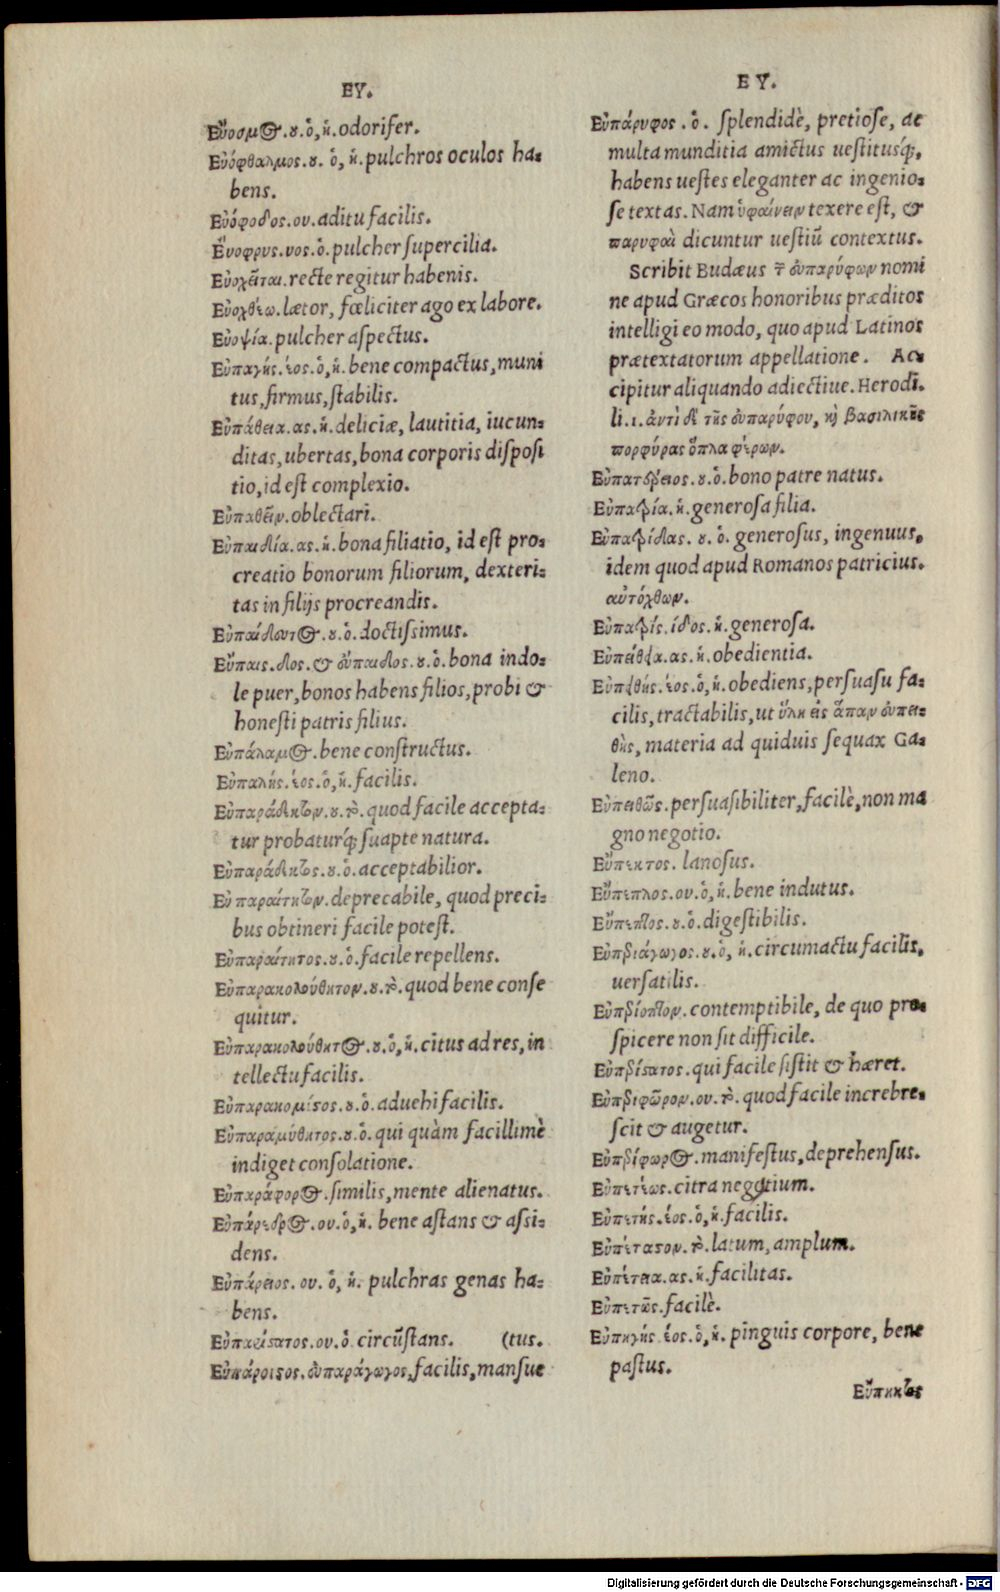 ΕΥ.
Εὔοσμος.ȣ.ὁ,ἡ.odorifer.
Εὐόφθαλμος.ȣ. ὁ, ἡ.pulchros oculos ha-
bens.
Εὐόφοδος.ου.aditu facilis.
Εὔοφρυς.υος.ὁ.pulcher supercilia.
Εὐοχεῖται.recte regitur habenis.
Εὐοχθέω.lætor, fœliciter ago ex labore.
Εὐοψία.pulcher aspectus.
Εὐπαγής.έος.ὁ,ἡ.bene compactus, muni
tus, firmus, stabilis.
Εὐπάθεια.ας.ἡ.deliciæ, lautitia, iucun-
ditas, ubertas, bona corporis disposi
tio, id est complexio.
Εὐπαθεῖν.oblectari.
Εὐπαιδία.ας.ἡ.bona filiatio, id est pro-
creatio bonorum filiorum, dexteri-
tas in filijs procreandis.
Εὐπαίδευτος.ȣ.ὁ.doctissimus.
Εὔπαις.δος.& εὔπαιδος.ȣ.ὁ.bona indo-
le puer, bonos habens filios, probi &
honesti patris filius.
Εὐπάλαμος.bene constructus.
Εὐπαλής.έος.ὁ,ἡ.facilis.
Εὐπαράδεκτον.ȣ.τὸ.quod facile accepta-
tur probaturq́; suapte natura.
Εὐπαράδεκτος.ȣ.ὁ.acceptabilior.
Εὐπαραίτητον.deprecabile, quod preci-
bus obtineri facile potest.
Εὐπαραίτητος.ȣ.ὁ.facile repellens.
Εὐπαρακολούθητον.ȣ.τὸ.quod bene conse
quitur.
Εὐπαρακολούθητος.ȣ.ὁ,ἡ.citus ad res, in
tellectu facilis.
Εὐπαρακομίστος.ȣ.ὁ.aduehi facilis.
Εὐπαραμύθητος.ȣ.ὁ.qui quàm facillimè
indiget consolatione.
Εὐπαράφορος.similis, mente alienatus.
Εὐπάρεδρος.ου.ὁ,ἡ. bene astans & assi-
dens.
Εὐπάρειος.ου. ὁ, ἡ. pulchras genas ha-
bens.
ου.ὁ.circũstans. (tus.
Εὐπάροιστος.εὐπαράγωγος, facilis, mansue
ΕΥ.
Εὐπάρυφος. ὁ. splendidè, pretiose, ac
multa munditia amictus uestitusq́;,
habens uestes eleganter ac ingenio-
se textas. Nam ὑφαίνειν texere est, &
παρυφαὶ dicuntur uestiũ contextus.
Scribit Budæus τῶν εὐπαρύφων nomi
ne apud Græcos honoribus præditos
intelligi eo modo, quo apud Latinos
prætextatorum appellatione. Ac-
cipitur aliquando adiectiue. Herodi.
li.1. ἀντὶ δὲ τῆς εὐπαρύφου, καὶ βασιλικῆς
πορφύρας ὅπλα φέρων.
Εὐπατέρειος.ȣ.ὁ.bono patre natus.
Εὐπατρία.ἡ.generosa filia.
Εὐπατρίδας. ȣ. ὁ. generosus, ingenuus,
idem quod apud Romanos patricius.
αὐτόχθων.
Εὐπατρίς.ίδος.ἡ.generosa.
Εὐπείθεια.ας.ἡ.obedientia.
Εὐπειθής.έος.ὁ,ἡ.obediens, persuasu fa-
cilis, tractabilis, ut ὕλη εἰς ἅπαν εὐπει-
θὴς, materia ad quiduis sequax Ga-
leno.
Εὐπειθῶς.persuasibiliter, facilè, non ma
gno negotio.
Εὔπεκτος. lanosus.
Εὔπεπλος.ου.ὁ,ἡ.bene indutus.
Εὔπεπτος.ȣ.ὁ.digestibilis.
Εὐπεριάγωγος.ȣ.ὁ, ἡ.circumactu facilis,
uersatilis.
Εὐπερίοπτον.contemptibile, de quo pro-
spicere non sit difficile.
Εὐπερίστατος.qui facile sistit & hæret.
Εὐπεριφῶρον.ου.τὸ.quod facile increbre-
scit & augetur.
Εὐπερίφωρος.manifestus, deprehensus.
Εὐπετέως.citra negotium.
Εὐπετής.έος.ὁ,ἡ.facilis.
Εὐπέταστον.τὸ.latum, amplum.
Εὐπέτεια.ας.ἡ.facilitas.
Εὐπετῶς.facilè.
Εὐπηγής.έος.ὁ,ἡ.pinguis corpore, bene
pastus.
Εὔπηκτος
Digitalisierung gefördert durch die Deutsche Forschungsgemeinschaft - DFG